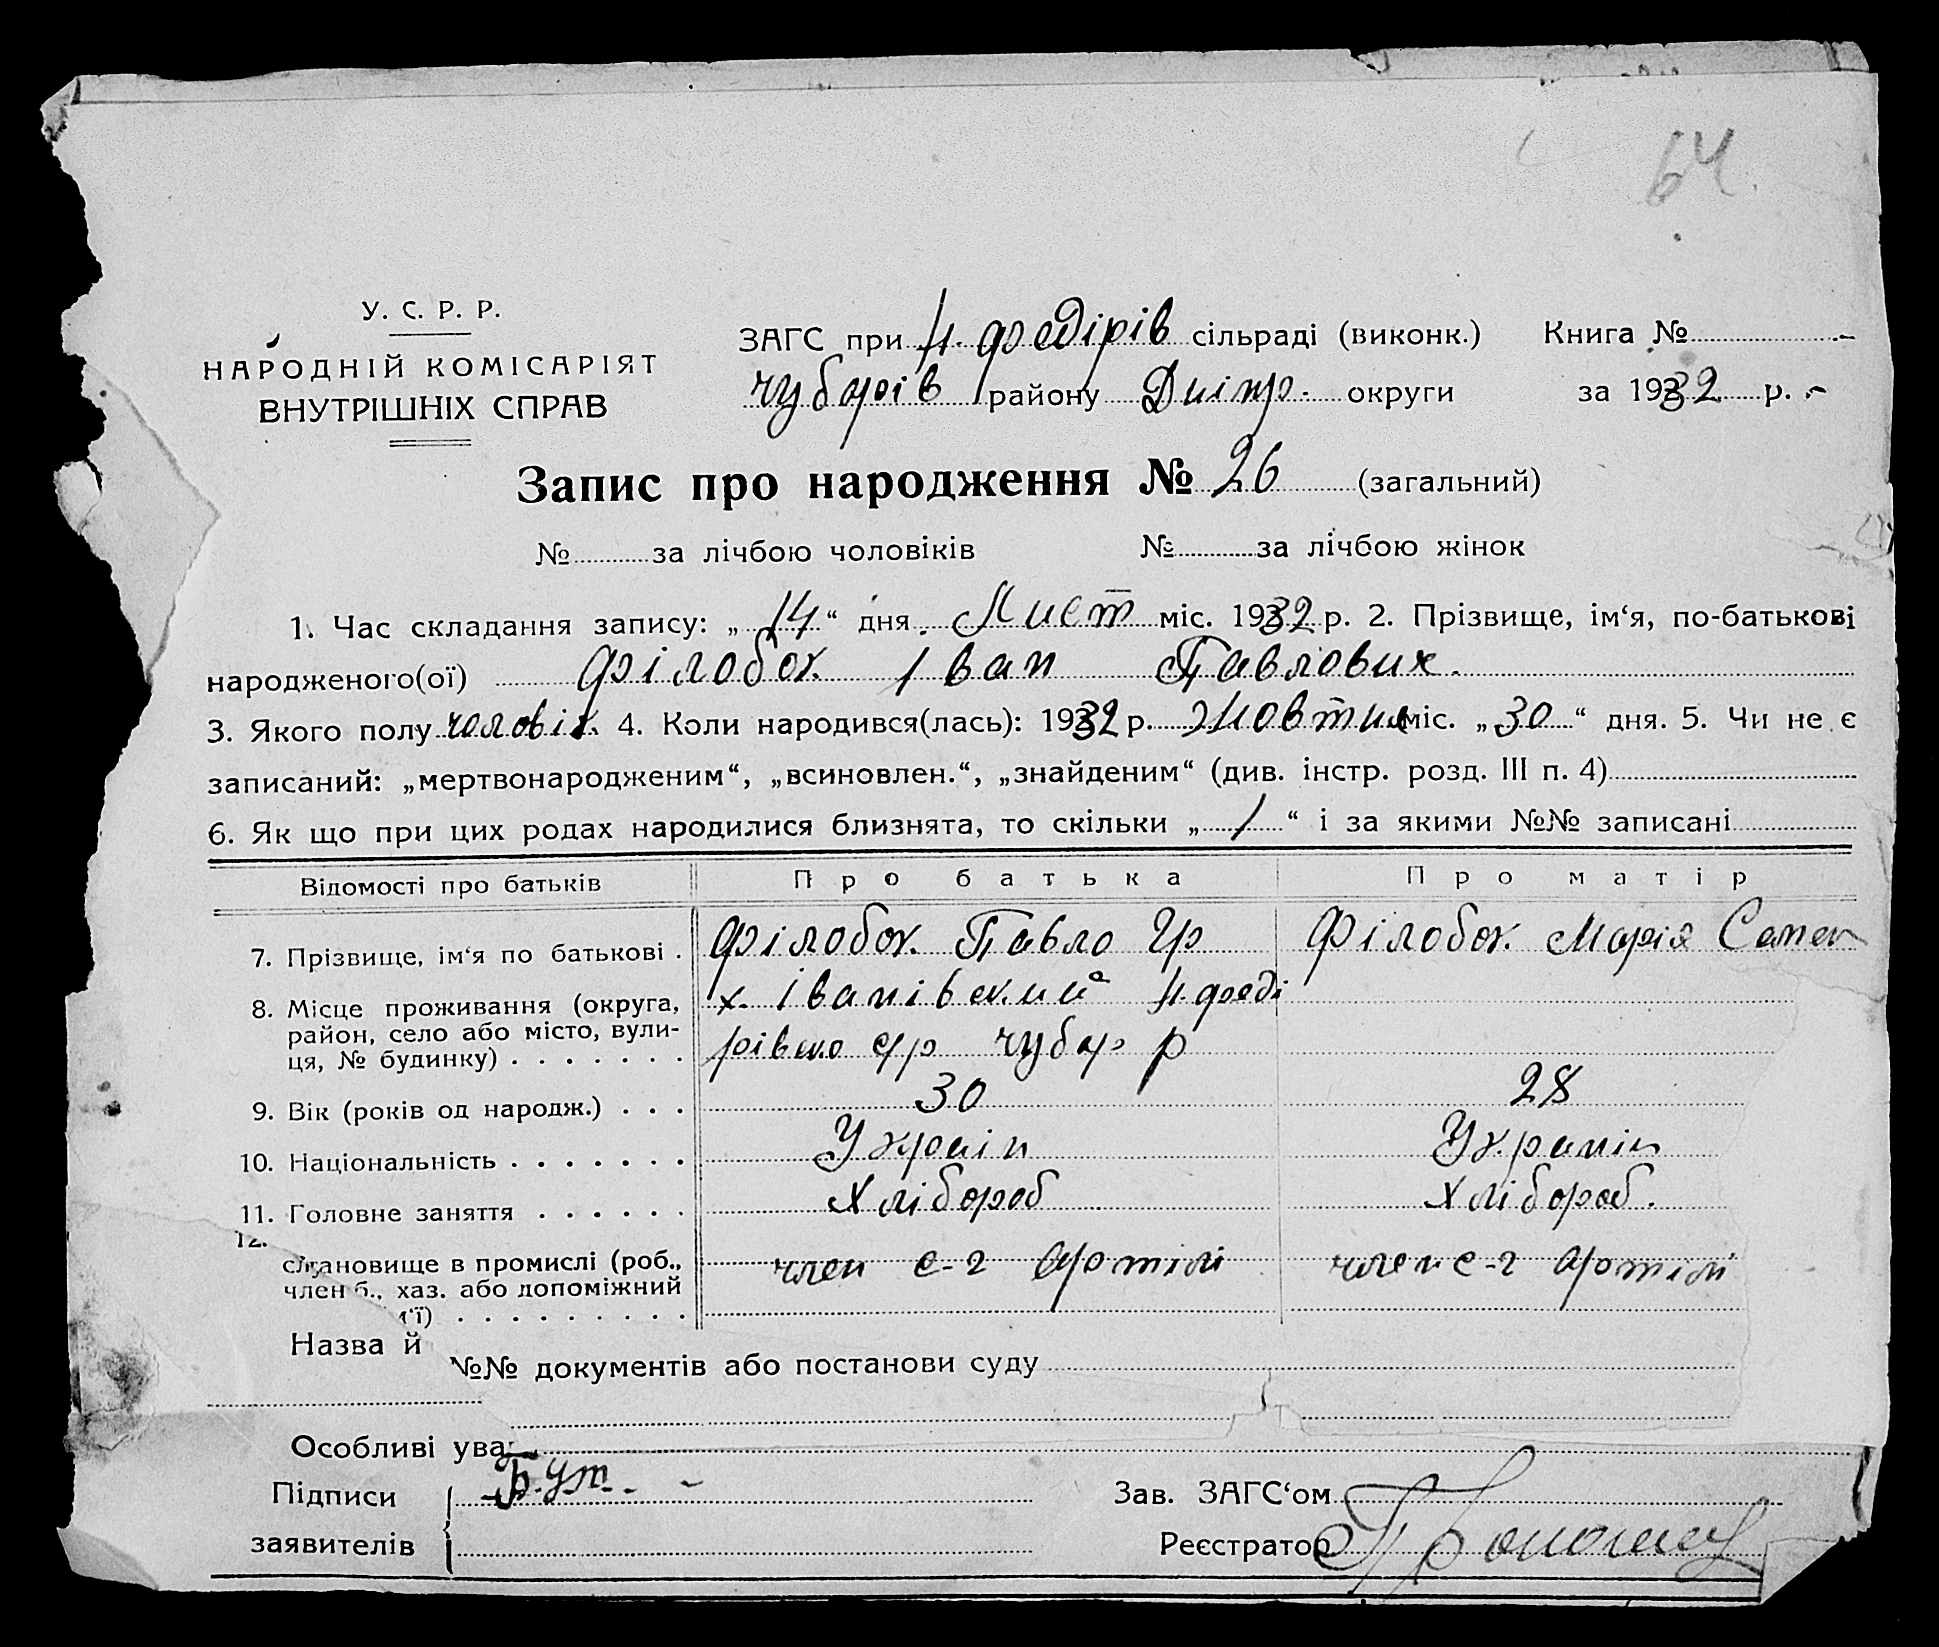 64.
У. С. Р. Р.
НАРОДНІЙ КОМІСАРІЯТ
ВНУТРІШНІХ СПРАВ
ЗАГС при Н. Федірів сільраді (виконк.) Книга №
Чубарів району Дніпр. округи за 1932 р.
Запис про народження № 26 (загальний)
№ за лічбою чоловіків № за лічбою жінок
1. Час складання запису: „14“ дня Лист міс. 1932 р. 2. Прізвище, ім‘я, по-батькові
народженого(ої) Філобок Іван Павлович.
3. Якого полу чоловік. 4. Коли народився(лась): 1932 р. Жовтня міс. „30“ дня. 5. Чи не є
записаний: „мертвонародженим“, „всиновлен.“, „знайденим“ (див. інстр. розд. III п. 4)
6. Як що при цих родах народилися близнята, то скільки „/“ і за якими №№ записані
Відомості про батьків Про батька Про матір
7. Прізвище, ім‘я по батькові . Філобок Павло Гр Філобок Марія Семен
8. Місце проживання (округа, х. Іванівський Н. Феді
район, село або місто, вули-
ця, № будинку) . . . . . . . рівсько с/р Чубар р
9. Вік (років од народж.) . . . 30 28
10. Національність . . . . . . . Україн Україн
11. Головне заняття . . . . . . Хлібороб Хлібороб.
12.
становище в промислі (роб., член с-г артілі член с-г артілі
член б., хаз. або допоміжний
'ї) . . . . . . . . .
Назва й №№ документів або постанови суду
Особливі ува
Підписи Бут. Зав. ЗАГС‘ом
заявителів Реєстратор